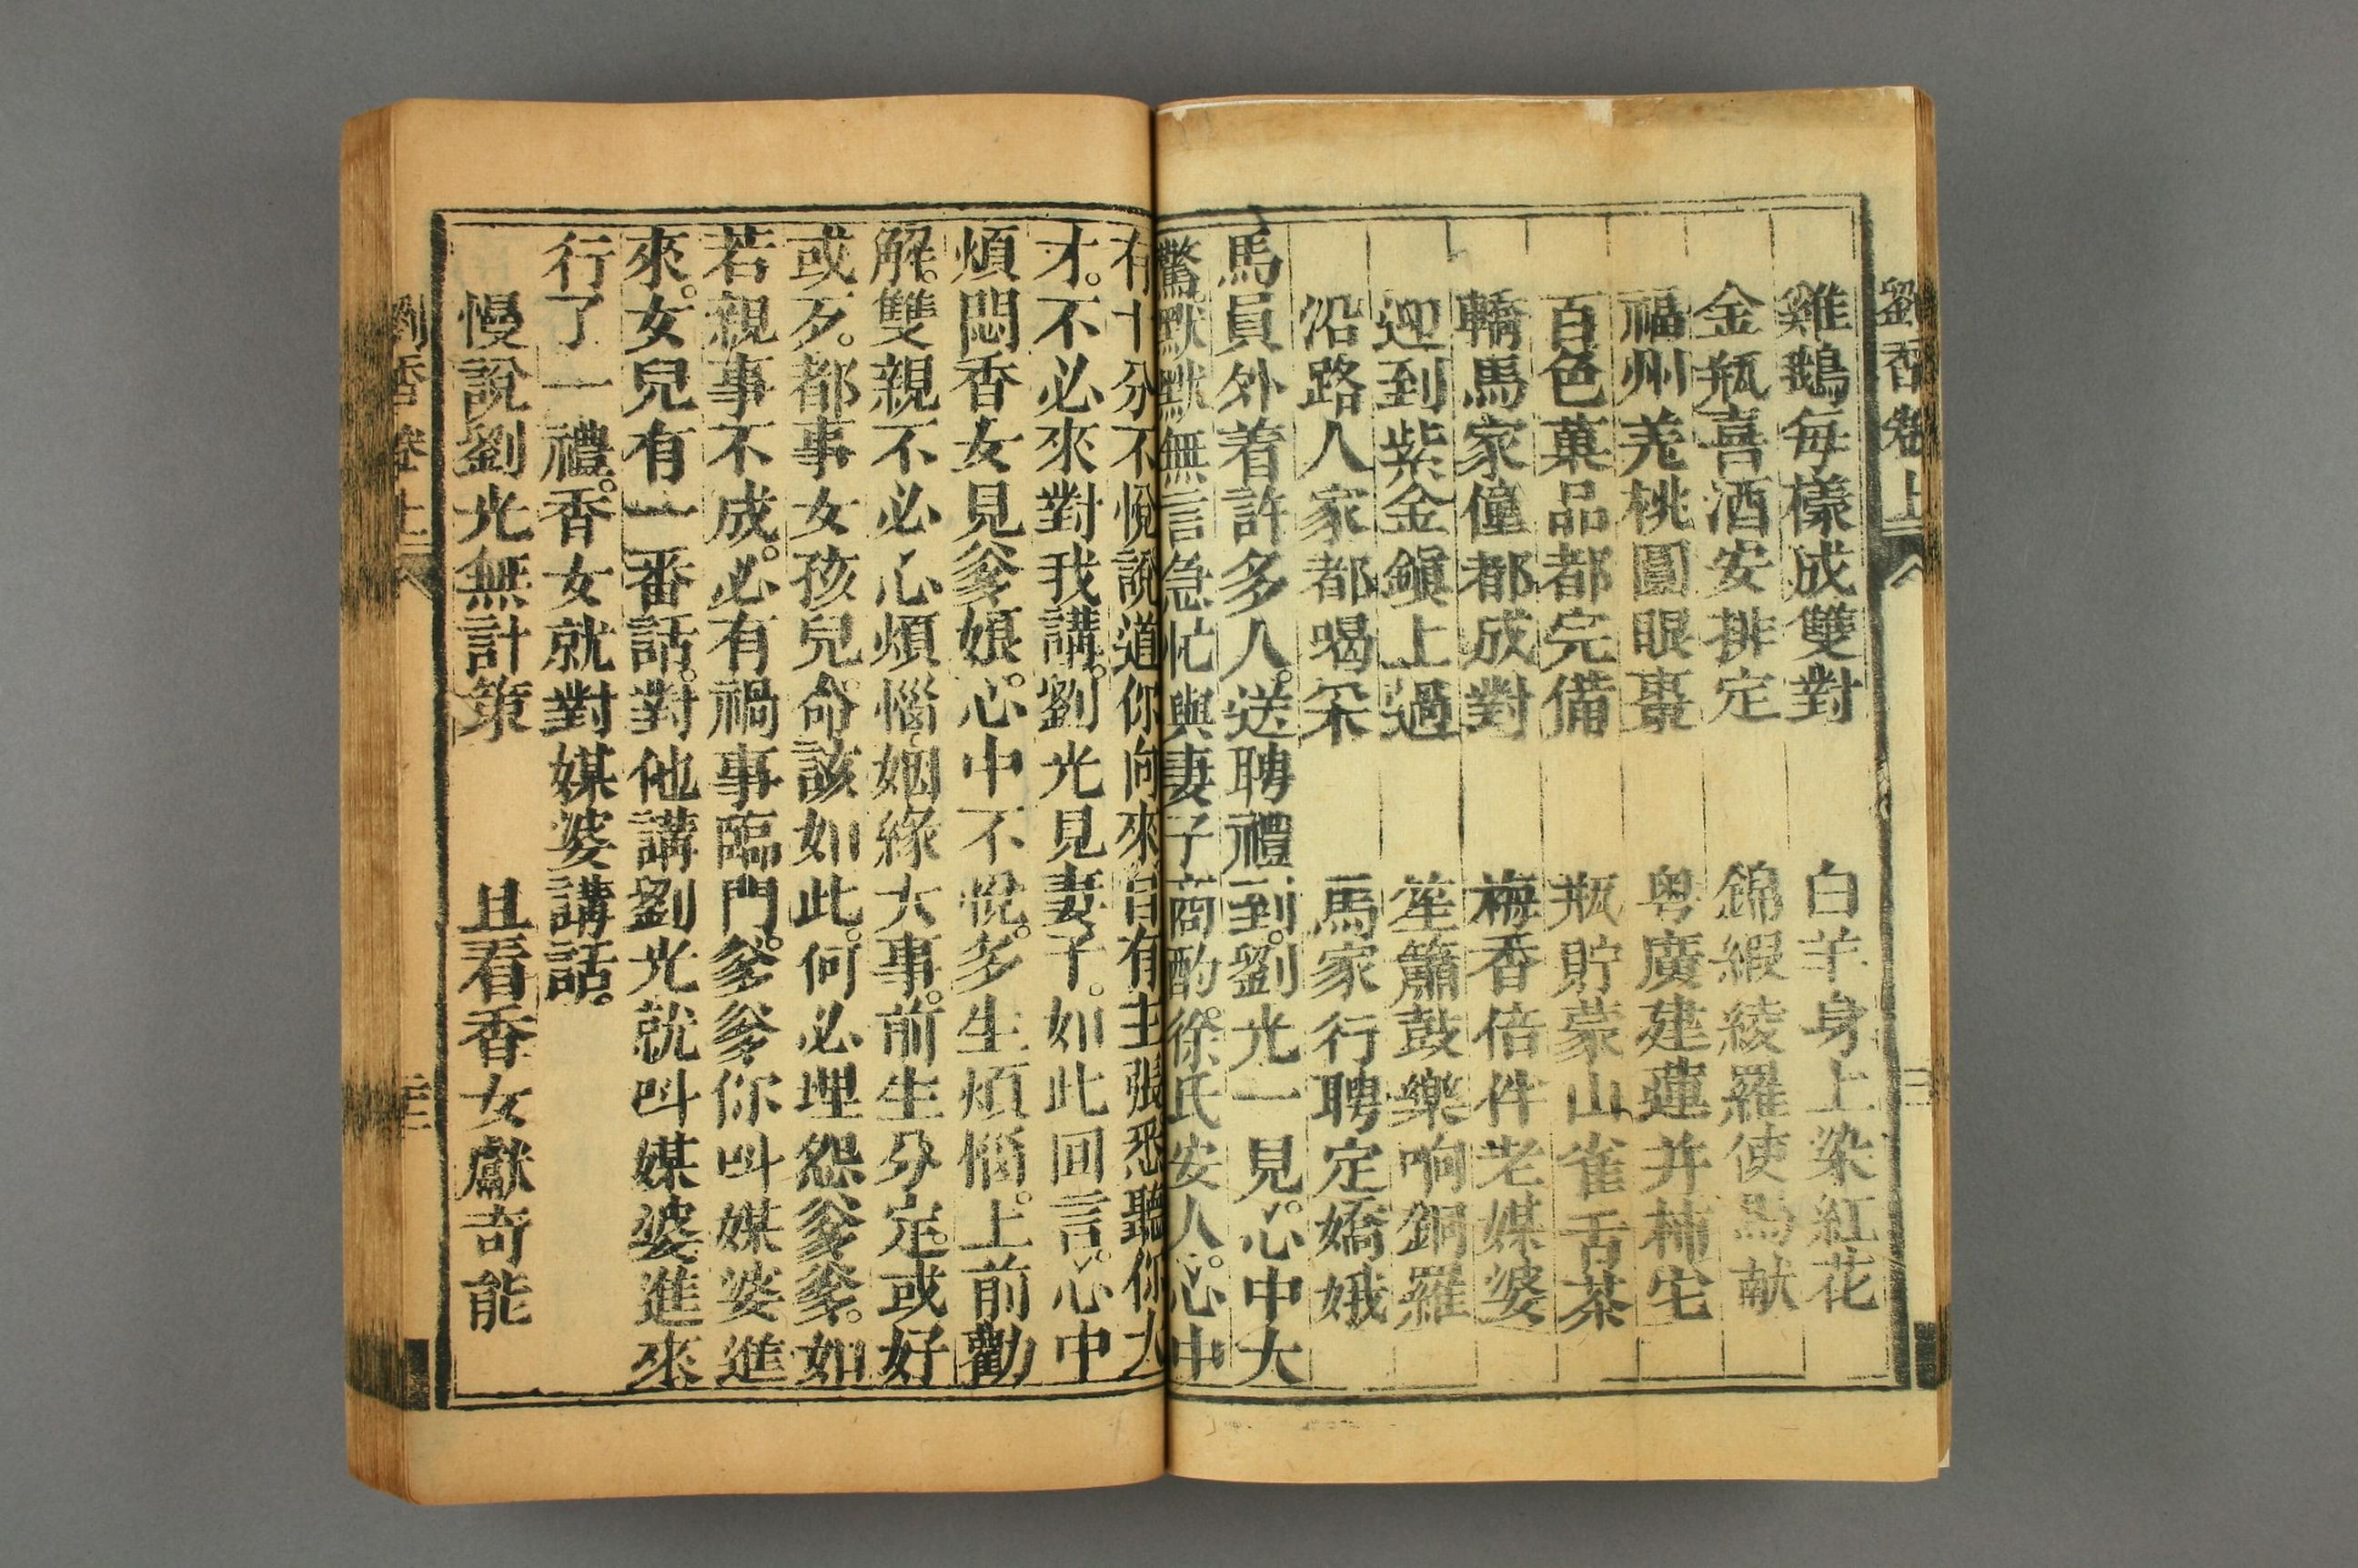 劉香卷上
雞鵝每樣成雙對 白羊身上染紅花
金瓶喜酒安排定 錦緞綾羅使馬献
福州羌桃圓眼棗 粤廣建蓮并柿宅
百色菓品都完備 瓶貯蒙山雀舌茶
轎馬家僮都成對 梅香倍伴老媒婆
迎到紫金鎭上過 笙簫鼓樂响銅羅
沿路人家都喝采 馬家行聘定嬌娥
馬員外着許多人。送聘禮到。劉光一見。心中大
驚。默默無言急忙與妻子商酌。徐氏安人。心中
有十分不悅說道你向來自有主張悉聽你大
才。不必來對我講。劉光見妻子。如此回言。心中
煩悶香女見爹娘。心中不悅。多生煩惱。上前勸
解。雙親不必心煩惱姻緣大事。前生分定。或好
或歹。都事女孩兒命該如此。何必埋怨爹爹。如
若親事不成。必有禍事臨門。爹爹你呌媒婆進
來。女兒有一番話。對他講劉光就呌媒婆進來
行了一禮。香女就對媒婆講話。
慢說劉光無計策 且看香女獻奇能
劉香卷上